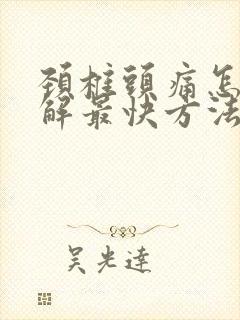 頚椎頭痛怎
解最快方法
吴光達